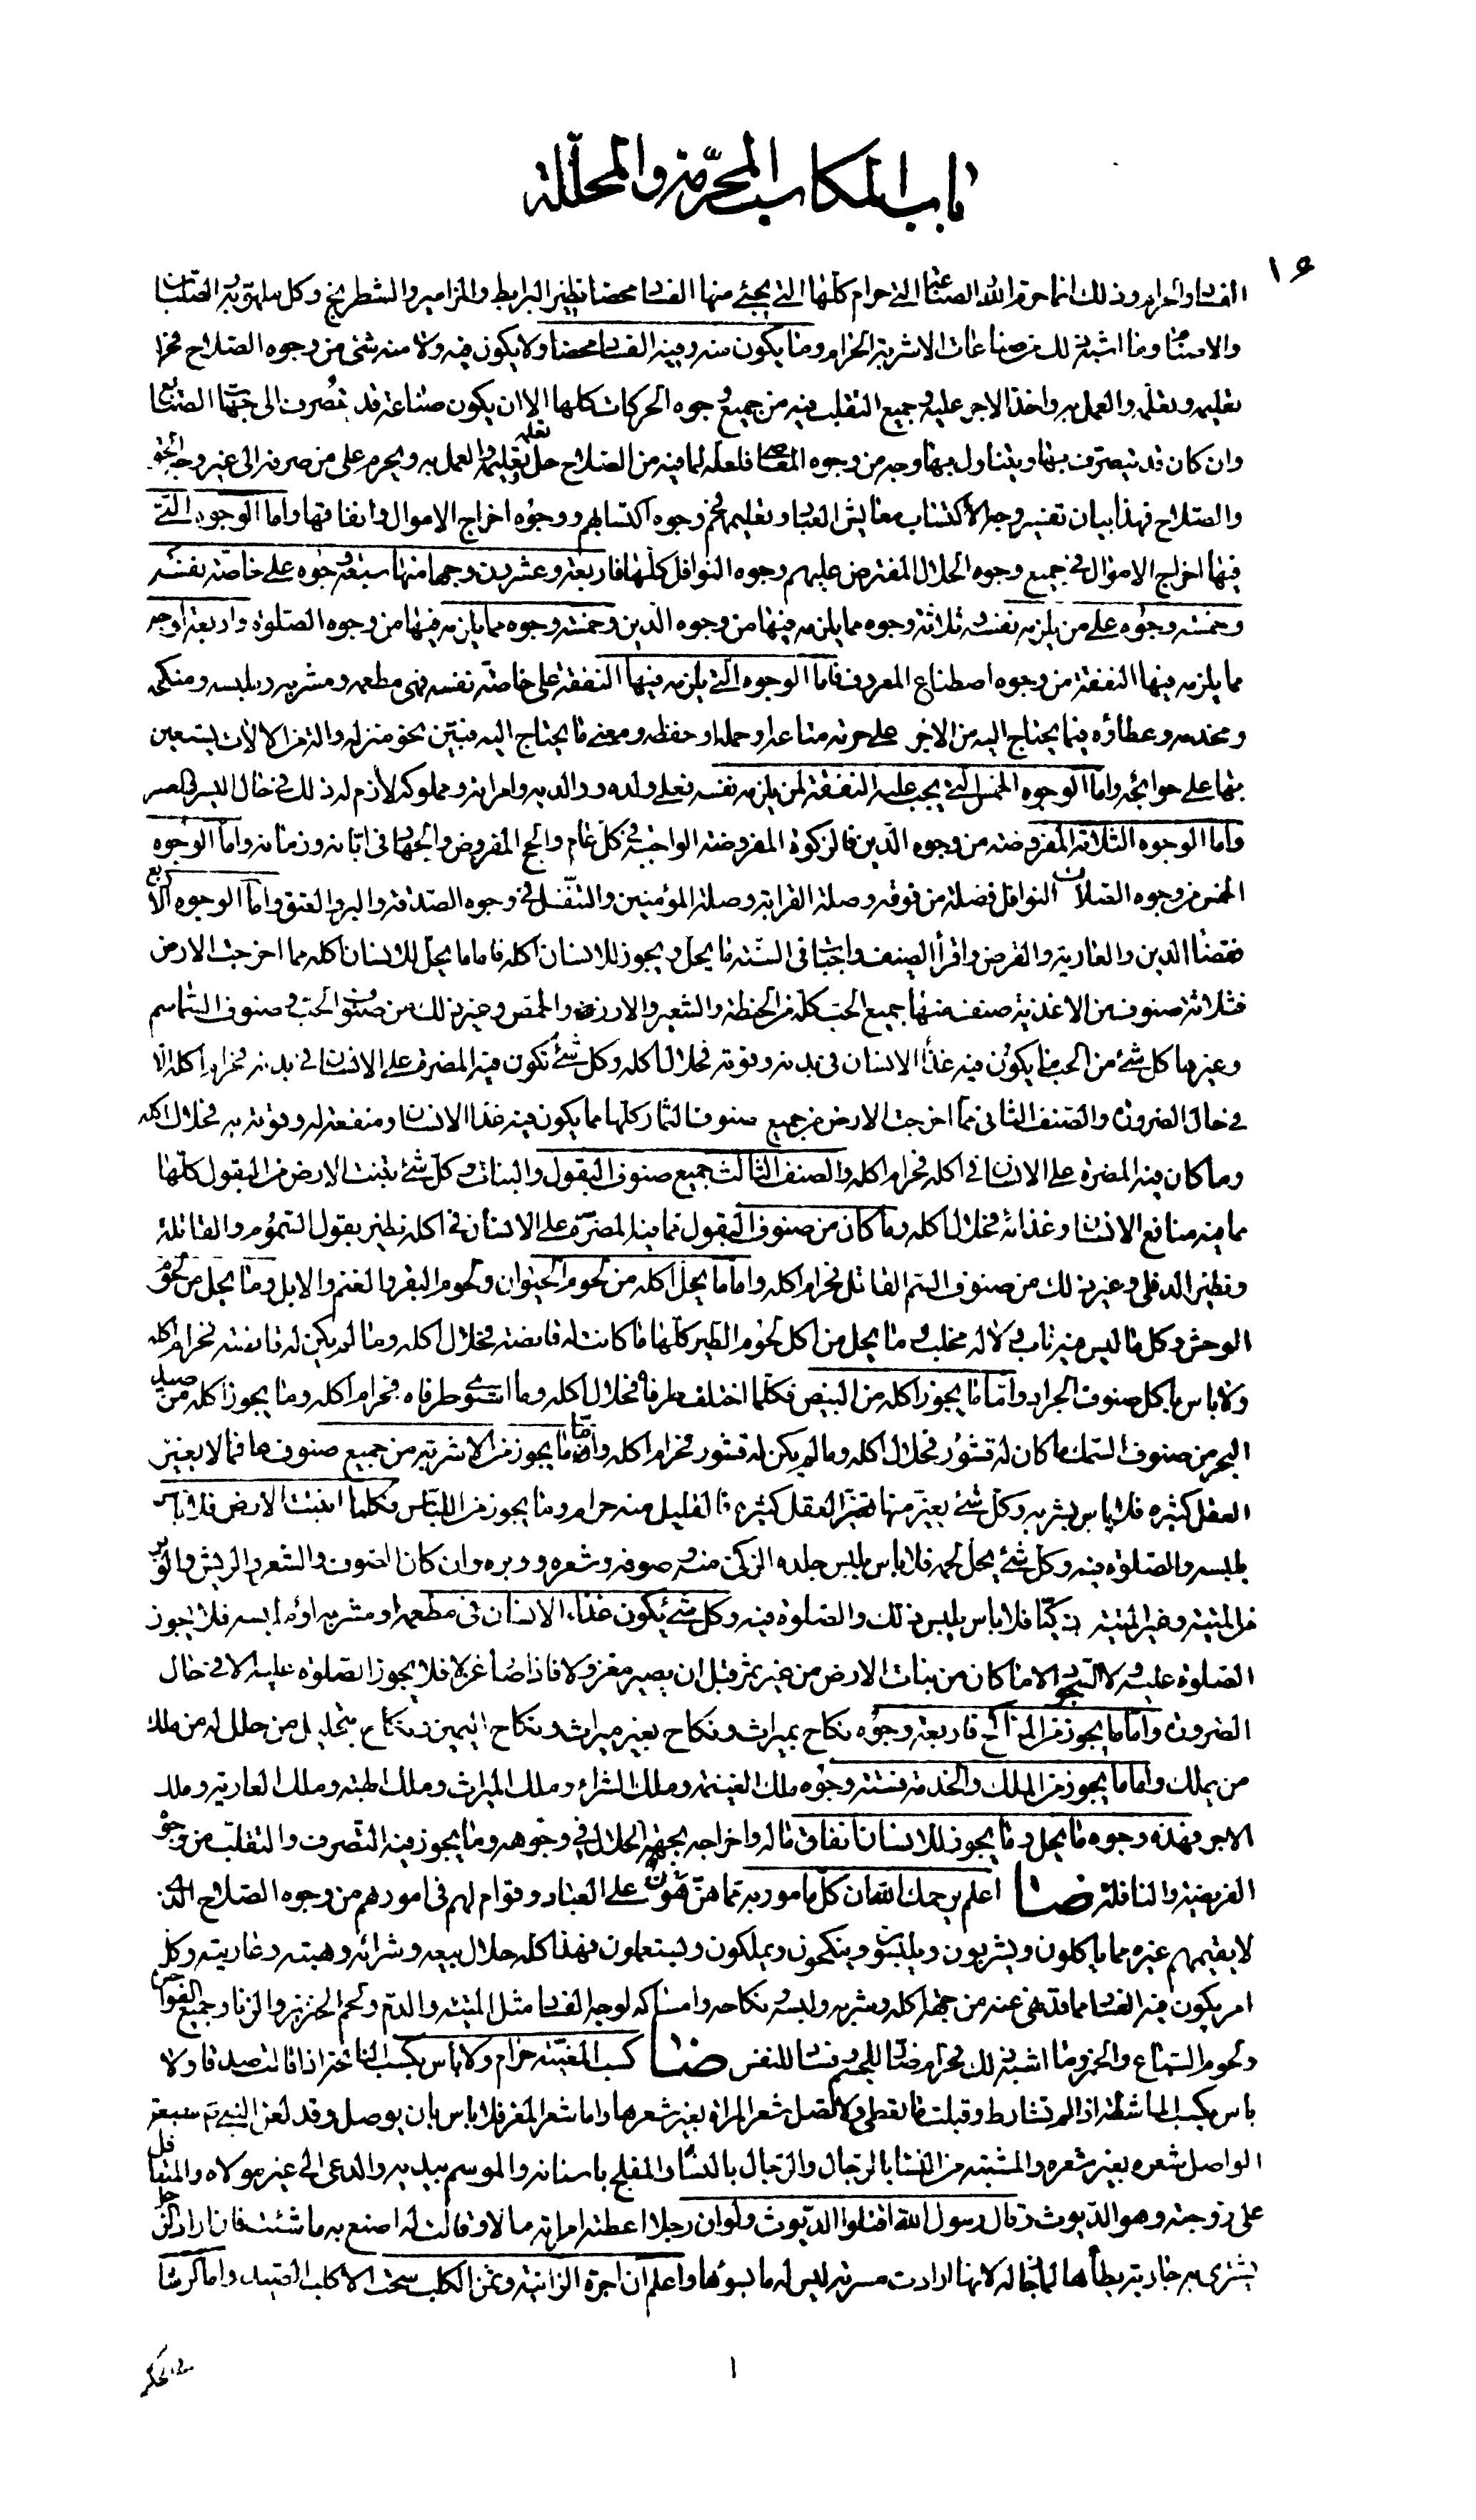 باب المكاسب المحرّمة والمحللة
١٦
الفساد حرام وذلك انما حرم الله الصناعة التي حرام كلها التي يجيئ منها الفساد محضا نظير البرابط والمزامير والشطرنج وكل ملهو به والصلبان
والاصنام وما اشبه ذلك من صناعات الاشربة الحرام وما يكون منه وفيه الفساد محضا ولا يكون فيه ولا منه شئ من وجوه الصلاح فحرام
تعليمه وتعلمه والعمل به واخذ الاجر عليه وجميع التقلب فيه من جميع وجوه الحركات كلها الا ان يكون صناعة قد تصرف الى جهات الصنايع
وان كان قد يتصرف بها ويتناول بها وجه من وجوه المعاصي فلعلة لما فيه من الصلاح حل تعلمه وتعليمه والعمل به ويحرم على من صرفه الى غير وجه الحق
والصلاح فهذا بيان تفسير وجه الاكتساب معايش العباد وتعليمهم في وجوه اكتسابهم ووجوه اخراج الاموال وانفاقها واما الوجوه التي
فيها اخراج الاموال في جميع وجوه الحلال المفترض عليهم ووجوه النوافل كلها فاربعة وعشرون وجها منها سبعة وجوه على خاصة نفسه
وخمسة وجوه على من يلزمه نفسه وثلاثة وجوه مما يلزمه فيها من وجوه الدين وخمسة وجوه مما يلزمه فيها من وجوه الصلوة واربعة اوجه
مما يلزمه فيها النفقة من وجوه اصطناع المعروف فاما الوجوه التي يلزمه فيها النفقة على خاصة نفسه فهي مطعمه ومشربه وملبسه ومنكحه
ومخدمه وعطاؤه فيما يحتاج اليه من الاجر على حرثه متاعه او حمله او حفظه ومعنى ما يحتاج اليه فبين نحو منزله والة من الالات يستعين
بها على حوائجه واما الوجوه الخمس التي يجب عليه النفقة لمن يلزمه نفسه فعلى ولده ووالديه وامراته ومملوكه لازم له ذلك في حال اليسر والعسر
واما الوجوه الثلاثة المفروضة من وجوه الدين فالزكوة المفروضة الواجبة في كل عام والحج المفروض والجهاد في ابانه وزمانه واما الوجوه
الخمس من وجوه الصلات النوافل فصلة من فوقه وصلة القرابة وصلة المؤمنين والتنفل في وجوه الصدقة والبر والعتق واما الوجوه الاربع
فقضاء الدين والعارية والقرض واقراء الضيف واجبات في السنة ما يحل ويجوز للانسان اكله فاما ما يحل للانسان اكله مما اخرجت الارض
فثلاثة صنوف من الاغذية صنف منها جميع الحب كله من الحنطة والشعير والارز والحمص وغير ذلك من صنوف الحب وصنوف السماسم
وغيرها كل شئ من الحب مما يكون فيه غذاء الانسان في بدنه وقوته فحلال اكله وكل شئ تكون فيه المضرة على الانسان في بدنه فحرام اكله الا
في حال الضرورة والصنف الثاني مما اخرجت الارض من جميع صنوف الثمار كلها مما يكون فيه غذاء الانسان ومنفعة له وقوته به فحلال اكله
وما كان فيه المضرة على الانسان في اكله فحرام اكله والصنف الثالث جميع صنوف البقول والنبات وكل شئ تنبت الارض من البقول كلها
مما فيه منافع الانسان وغذائه فحلال اكله وما كان من صنوف البقول مما فيه المضرة على الانسان في اكله نظير بقول السموم والقاتلة
ونظير الدفلى وغير ذلك من صنوف السم القاتل فحرام اكله واما ما يحل اكله من لحوم الحيوان ولحوم البقر والغنم والابل وما يحل من لحوم
الوحش وكل ما ليس فيه ناب ولا له مخلب وما يحل من اكل لحوم الطير كلها ما كانت له قانصة فحلال اكله وما لم يكن له قانصة فحرام اكله
ولا باس باكل صنوف الجراد واما ما يجوز اكله من البيض فكلما اختلف طرفاه فحلال اكله وما استوى طرفاه فحرام اكله وما يجوز اكله من صيد
البحر من صنوف السمك ما كان له قشور فحلال اكله وما لم يكن له قشور فحرام اكله واما ما يجوز من الاشربة من جميع صنوفها فما لا يغير
العقل كثيره فلا باس بشربه وكل شئ يغير منها العقل كثيره فالقليل منه حرام وما يجوز من اللباس فكلما انبتت الارض فلا باس
بلبسه والصلوة فيه وكل شئ يحل لحمه فلا باس بلبس جلده الزكى منه وصوفه وشعره ووبره وان كان الصوف والشعر والريش والوبر
من الميتة وغير الميتة ذكيا فلا باس بلبس ذلك والصلوة فيه وكل شئ يكون غذاء الانسان في مطعمه او مشربه او ملبسه فلا يجوز
الصلوة عليه ولا السجود الا ما كان من نبات الارض من غير ثمر قبل ان يصير مغزولا فاذا صار غزلا فلا يجوز الصلوة عليه الا في حال
الضرورة واما ما يجوز من المناكح فاربعة وجوه نكاح بميراث ونكاح بغير ميراث ونكاح اليمين ونكاح بتحليل من حلل له من ملك
من يملك واما ما يجوز من الملك والخدمة فستة وجوه ملك الغنيمة وملك الشراء وملك الميراث وملك الهبة وملك العارية وملك
الاجر فهذه وجوه ما يحل وما يجوز للانسان انفاق ماله واخراجه بجهة الحلال في وجوهه وما يجوز فيه التصرف والتقلب من وجوه
الفريضة والنافلة ضا اعلم يرحمك الله ان كل مامور به مما هو على العباد وقوام لهم في امورهم من وجوه الصلاح الذي
لا يقيمهم غيره مما ياكلون ويشربون ويلبسون وينكحون ويملكون ويستعملون فهذا كله حلال بيعه وشرائه وهبته وعاريته وكل
امر يكون فيه الفساد مما قد نهى عنه من جهة اكله وشربه ولبسه ونكاحه وامساكه لوجه الفساد مثل الميتة والدم ولحم الخنزير والزنا وجميع الفواحش
ولحوم السباع والخمر وما اشبه ذلك فحرام ضار للجسم وفساد للنفس ضا كسب المغنية حرام ولا باس بكسب النائحة اذا قالت صدقا ولا
باس بكسب الماشطة اذا لم تشارط وقبلت ما تعطى ولا تصل شعر المراة بغير شعرها واما شعر المعز فلا باس بان يوصل وقد لعن النبي سبعة
الواصل شعره بغير شعره والمشتبه من النساء بالرجال والرجال بالنساء والمفلج باسنانه والموسم بيديه والدعى الى غير مولاه والمتغافل
على زوجته وهو الديوث وقال رسول الله اقتلوا الديوث ولو ان رجلا اعطته امراته مالا وقالت له اصنع به ما شئت فان اراد الرجل
يشترى به جارية يطأها لما جاز له لانها ارادت مسرته ليس له ما يسوؤها واعلم ان اجرة الزانية وثمن الكلب سحت الا كلب الصيد واما الرشا
في الحكم
١